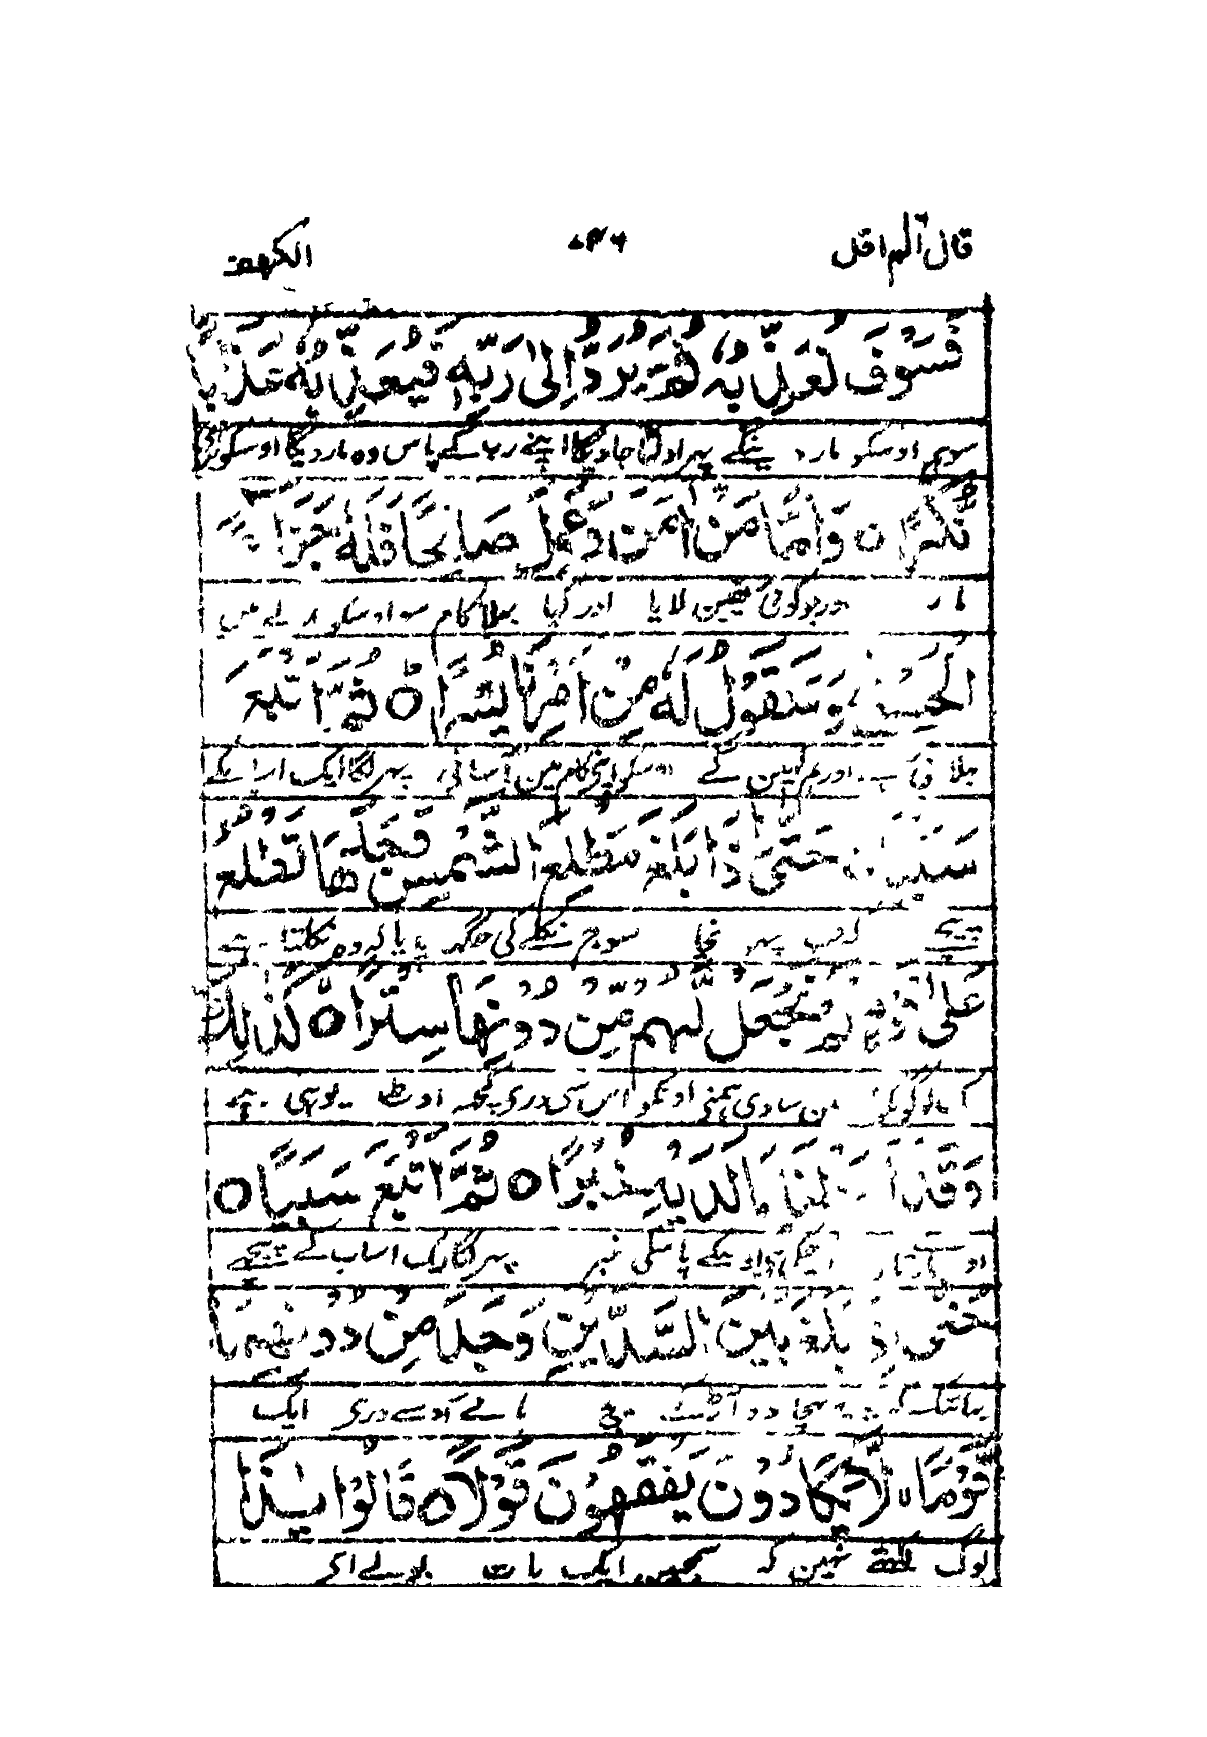 قال الم اقل ۴۲۶ الكهف
فَسَوْفَ نُعَذِّبُهُ ثُمَّ يُرَدُّ اِلٰى رَبِّهٖ فَيُعَذِّبُهُ عَذَابًا
سوہم اوسکو مار دینگے پہر اولٹا جاویگا اپنے رب کے پاس وہ مار دیگا اوسکو بری
نُّكْرًا ○ وَاَمَّا مَنْ اٰمَنَ وَعَمِلَ صَالِحًا فَلَهٗ جَزَآءَ
مار اور جو کوئی یقین لایا اور کیا بہلا کام سو اوسکو بدلے میں
الْحُسْنٰى وَسَنَقُوْلُ لَهٗ مِنْ اَمْرِنَا يُسْرًا ○ ثُمَّ اَتْبَعَ
بہلائی ہے اور ہم کہین گے اوسکو اپنی کام مین آسانی پہر لگا ایک اسباب کے
سَبَبًا ○ حَتّٰى اِذَا بَلَغَ مَطْلِعَ الشَّمْسِ وَجَدَهَا تَطْلُعُ
پیچہے جب پہونچا سورج نکلنے کی جگہہ پایا کہ وہ نکلتا ہے
عَلٰى قَوْمٍ لَّمْ نَجْعَلْ لَّهُمْ مِّنْ دُوْنِهَا سِتْرًا ○ كَذٰلِكَ
لوگوں نہین بنادی ہمنی اونکو اس سی وری کچہہ اوٹ یوہی ہے
وَقَدْ اَحَطْنَا بِمَا لَدَيْهِ خُبْرًا ○ ثُمَّ اَتْبَعَ سَبَبًا ○
اوسکے پاس کی خبر پہر لگا ایک اسباب کے پیچہے
حَتّٰى اِذَا بَلَغَ بَيْنَ السَّدَّيْنِ وَجَدَ مِنْ دُوْنِهِمَا
یہانتک کہ پہونچا دو آڑ کے بیچ پائے اون سے وری ایک
قَوْمًا لَّا يَكَادُوْنَ يَفْقَهُوْنَ قَوْلًا ○ قَالُوْا يٰذَا
لوگ لگتے نہین کہ سمجہین ایک بات بولے اے